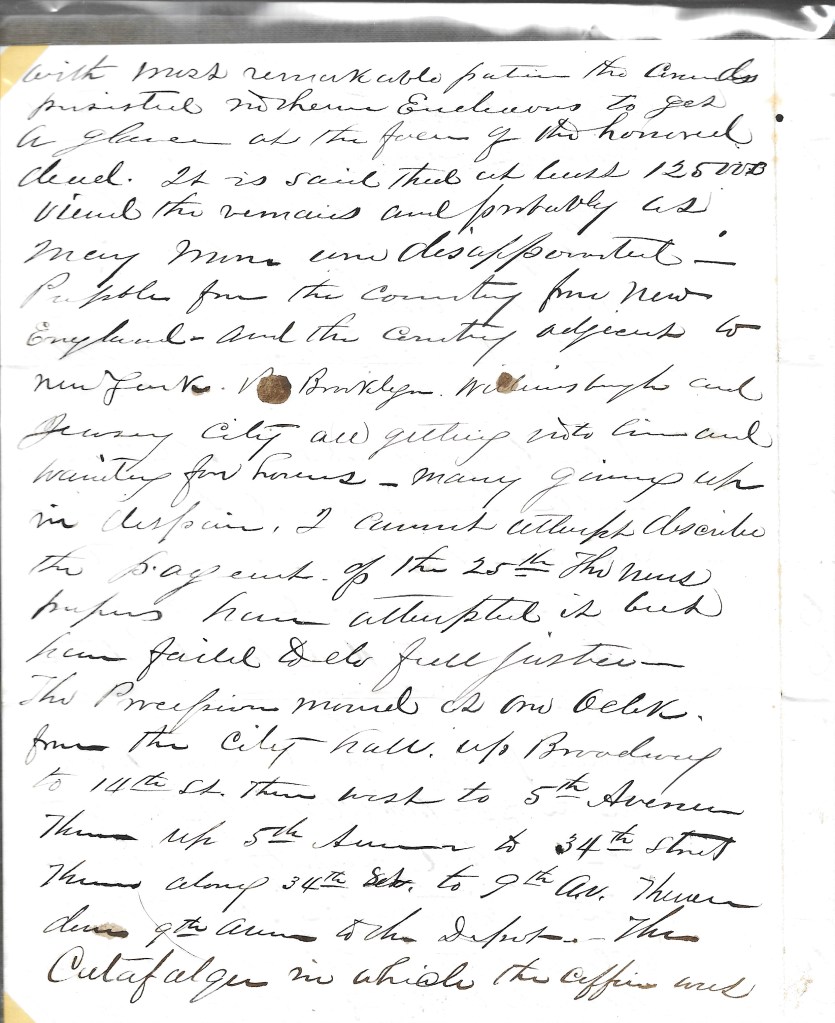 with most remarkable patien the Crowds
persisted in their Endeavors to get
a glance at the face of the honored
dead. It is said that at least 125000
viewd the remains and probably as
many more were disappointed –
People from the country from New
England – and the country adjacent to
New York. Brooklyn. Williamsburgh and
Jersey City all getting into line and
waiting for hours – many giving up
in despair. I cannot attempt describe
the pageant of the 25th The news
papers have attempted it but
have failed to do full justice –
The Procession moved at one Oclk.
from the City hall. up Broadway
to 14th St. Then west to 5th Avenue
Thence up 5th Avenue to 34th Street
Thence along 34th to 9th Av. Thence
down 9th Avenue to the Depot. – The
Catafalque in which the coffin was